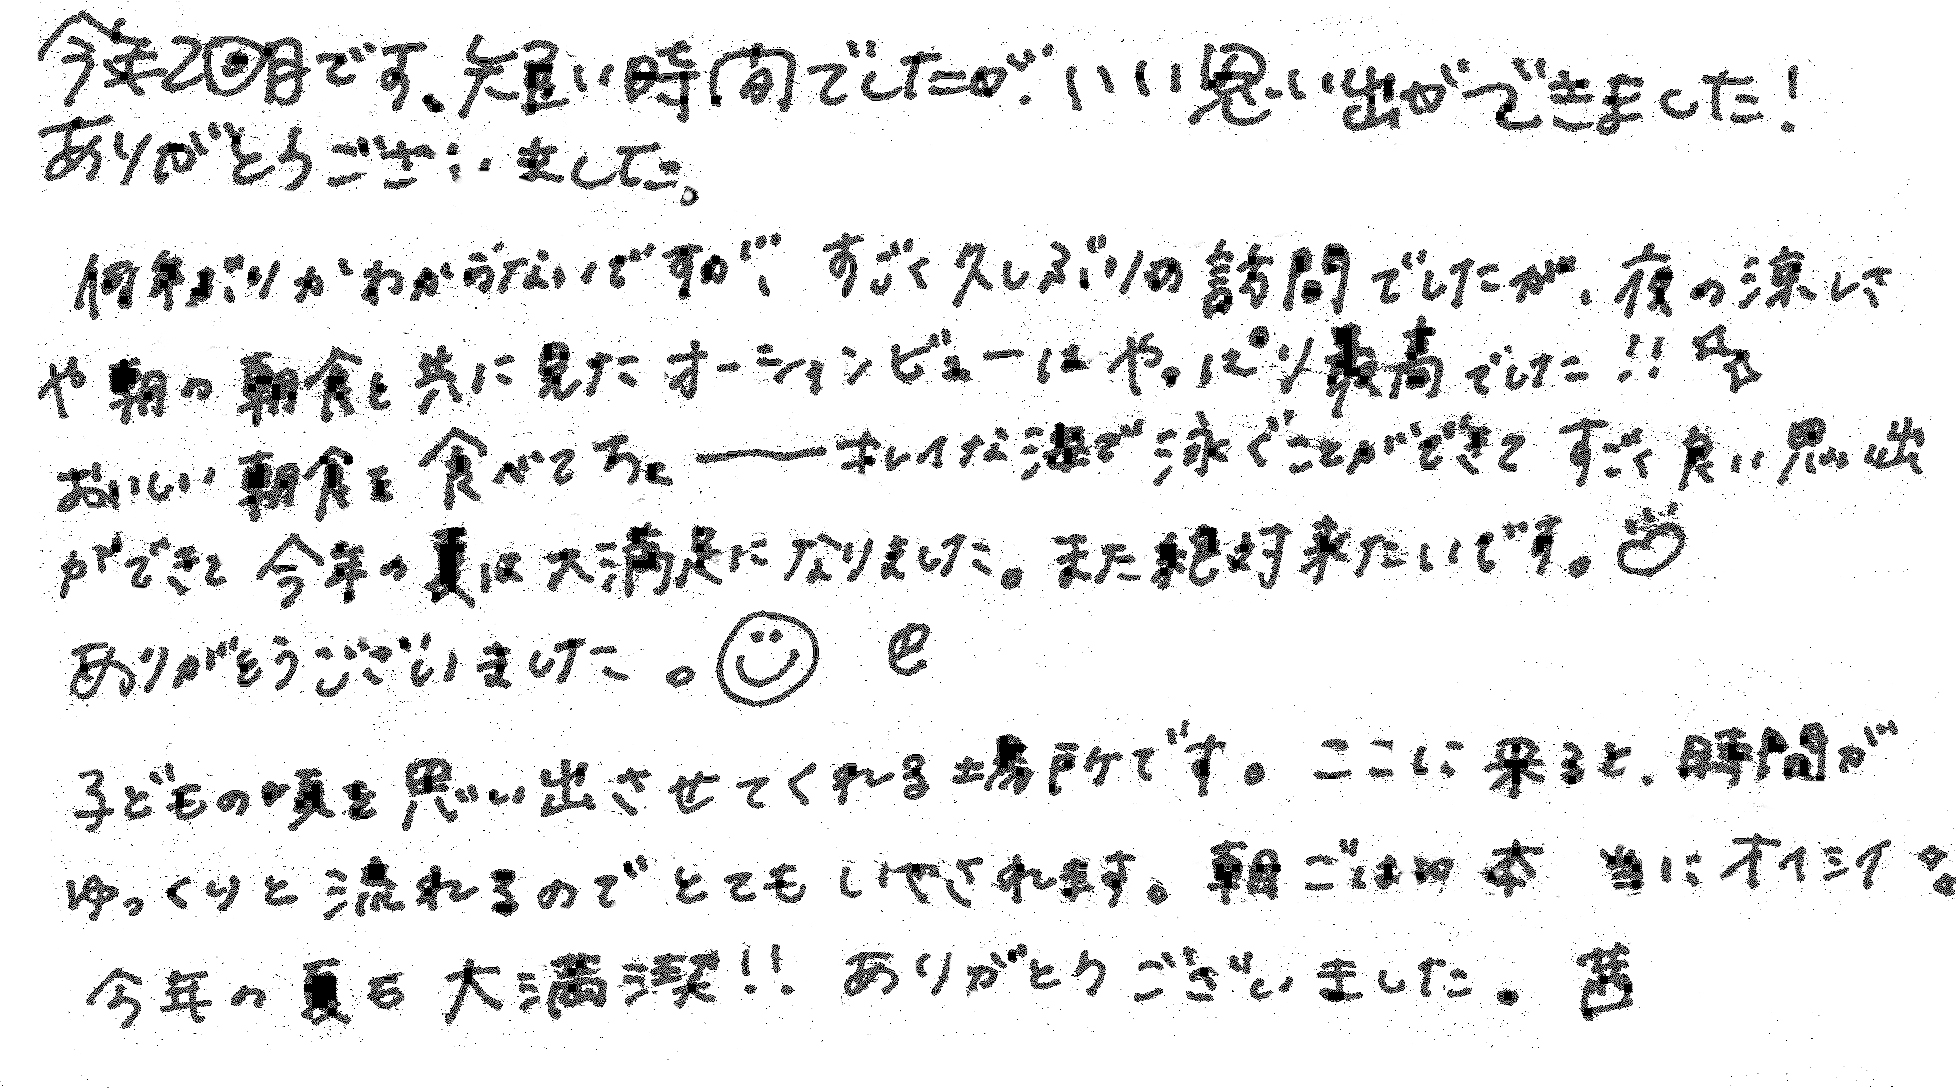 今年2回目です、短い時間でしたが、いい思い出ができました!
ありがとうございました。
何年ぶりかわからないですが、すごく久しぶりの訪問でしたが、夜の涼しさ
や朝の朝食と共に見たオーションビューはやっぱり最高でした!!
おいしい朝食を食べてちょーーキレイな海で泳ぐことができてすごく良い思い出
ができて今年の夏は大満足になりました。また絶対来たいです。
ありがとうございました。
子どもの頃を思い出させてくれる場所です。ここに来ると、時間が
ゆっくりと流れるのでとてもいやされます。朝ごはんの本当にオイシイ
今年の夏も大満喫!!ありがとうございました。茜